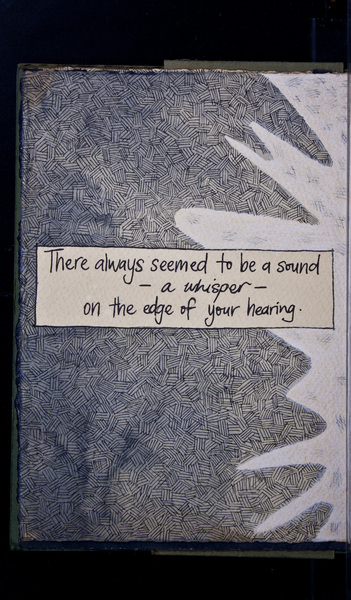 There always seemed to be a sound
– a whisper –
on the edge of your hearing.